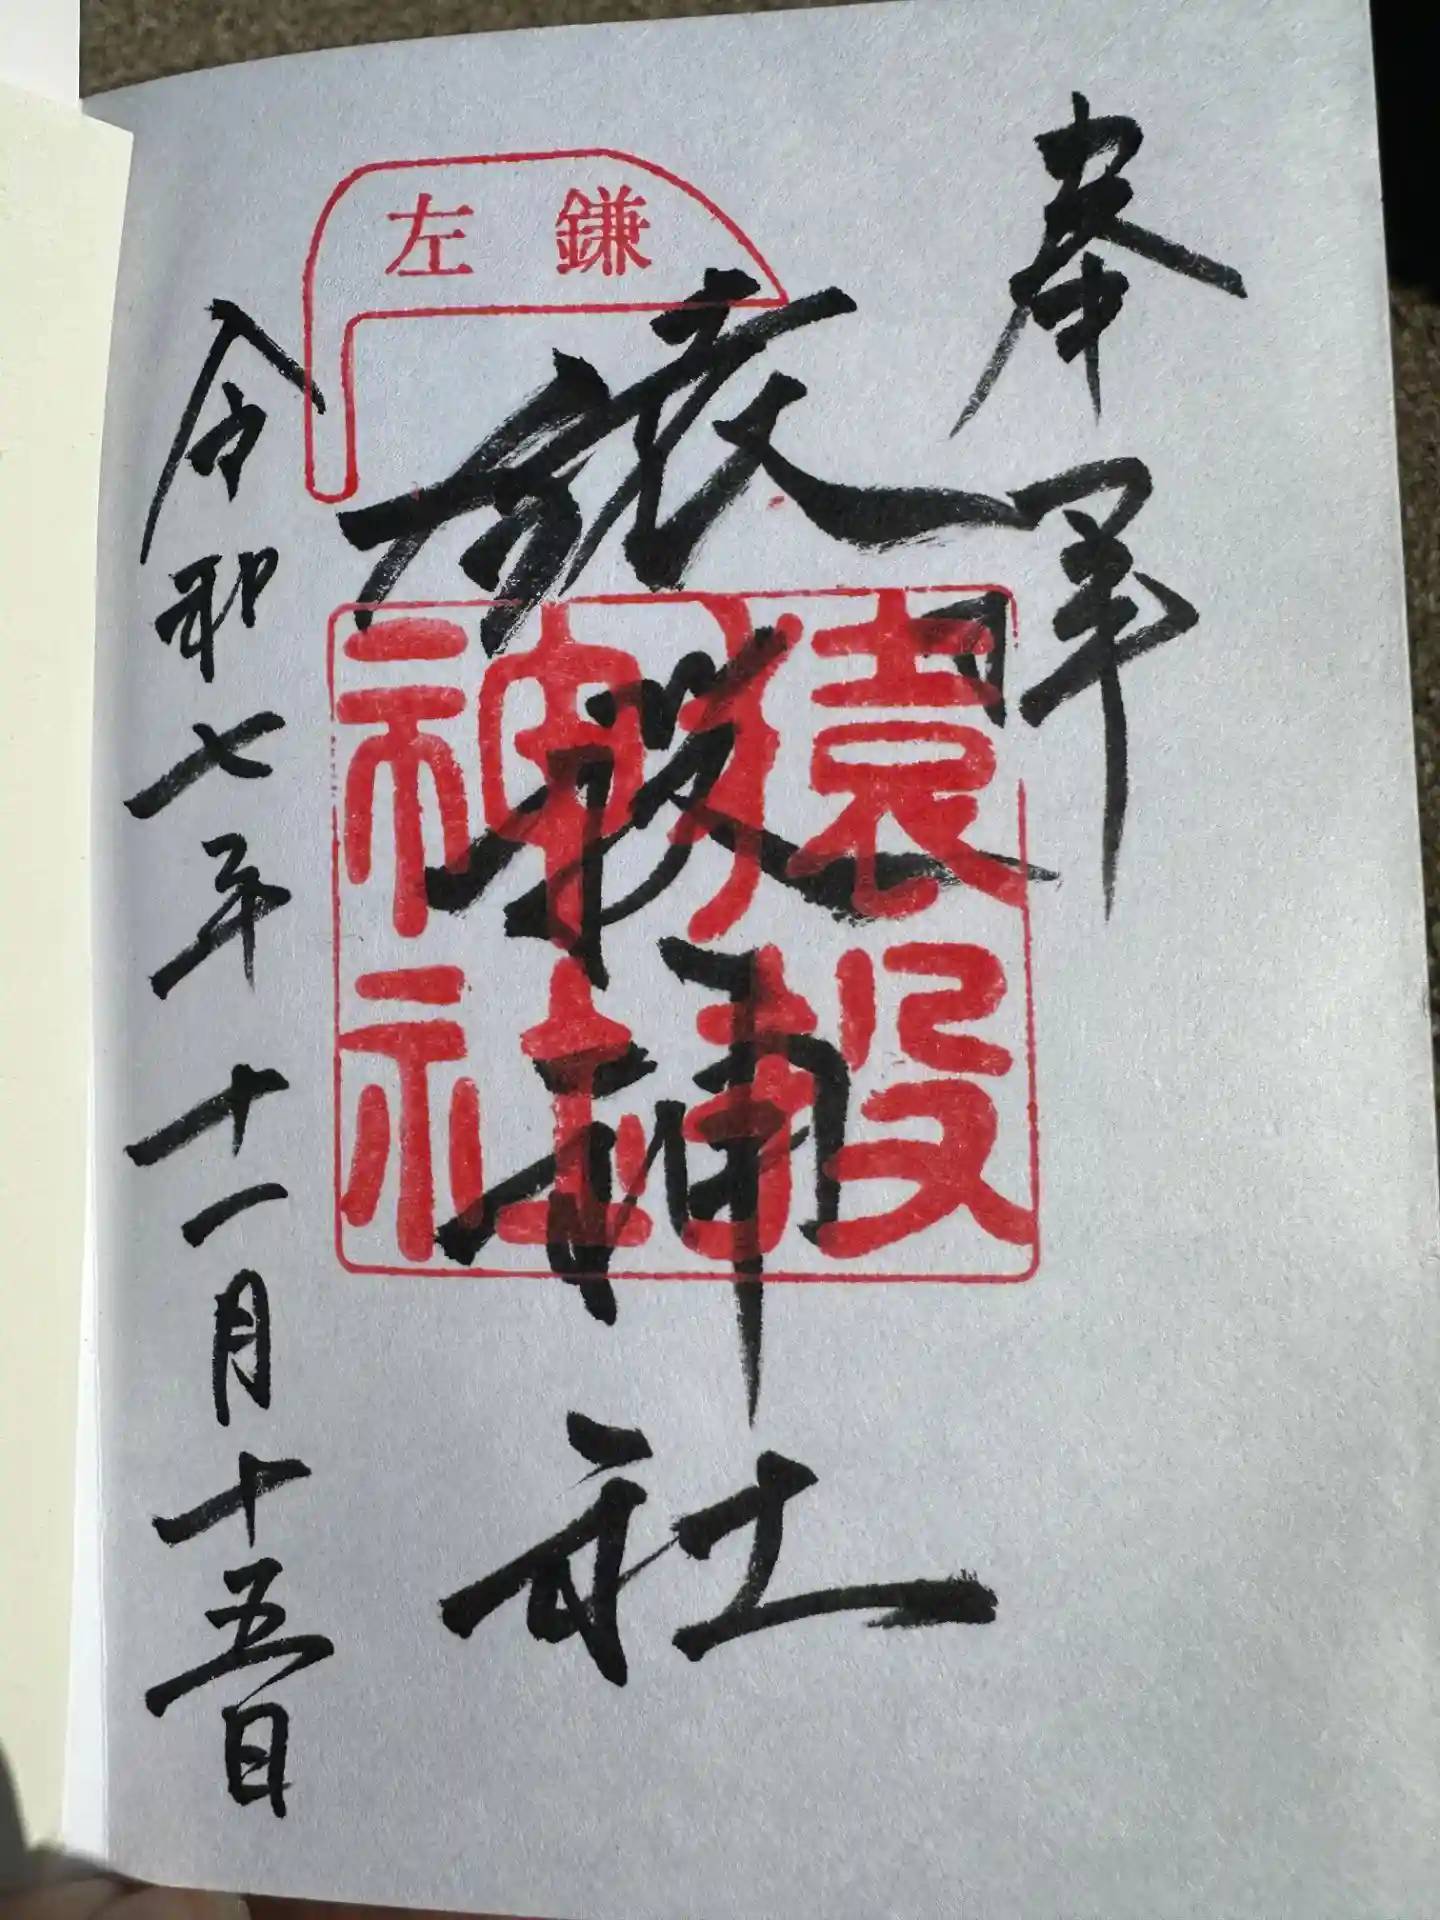 奉拝
左鎌
猿投神社
猿投神社
令和七年十一月十五日